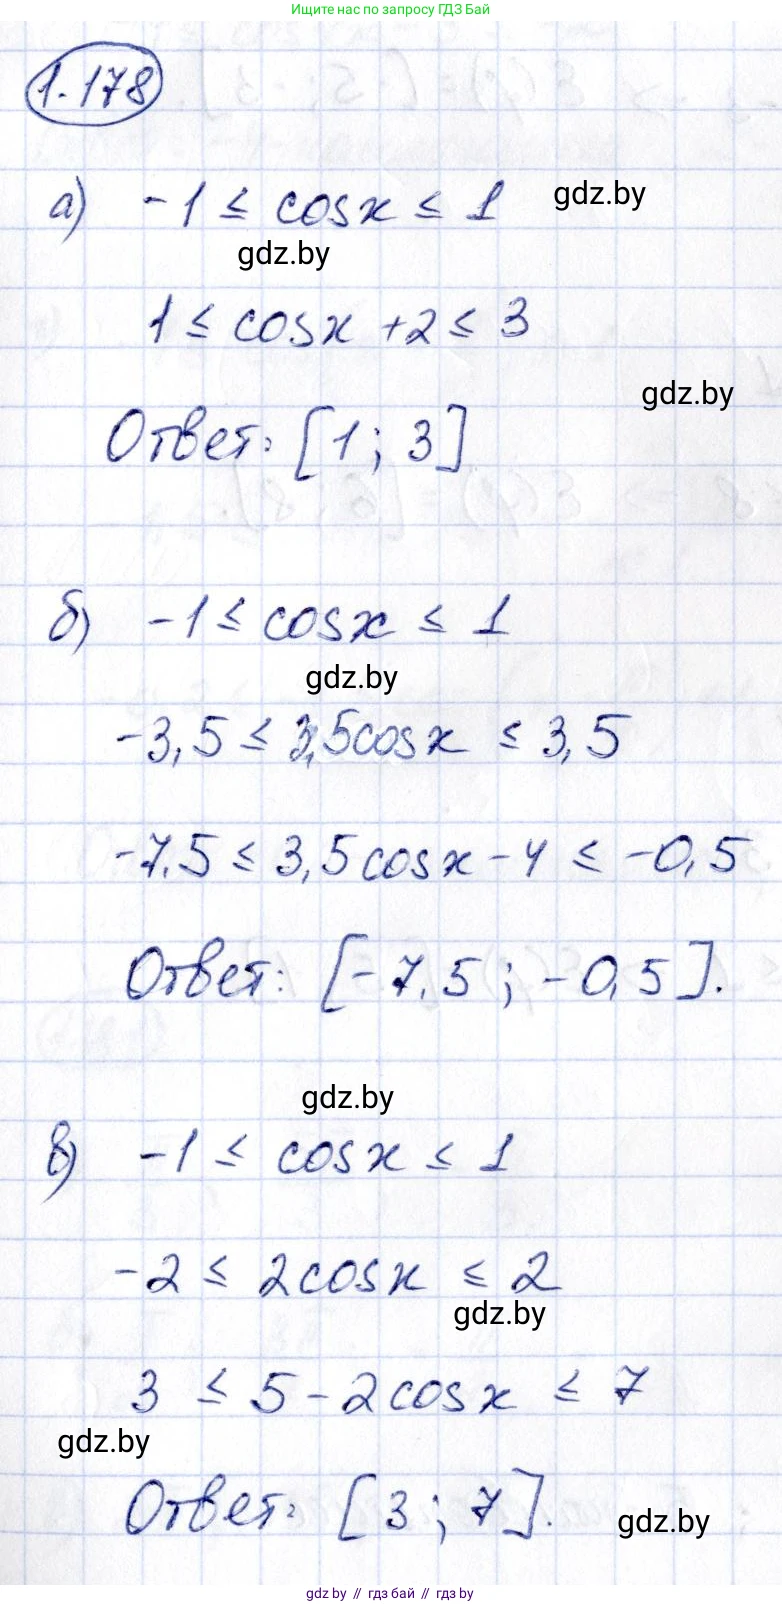 Ищите нас по запросу ГДЗ Бай
1.178
а) -1 ≤ cosx ≤ 1
gdz.by
gdz.by
1 ≤ cosx +2 ≤ 3
gdz.by
Ответ: [1; 3]
б) -1 ≤ cosx ≤ 1
gdz.by
-3,5 ≤ 3,5cosx ≤ 3,5
-7,5 ≤ 3,5cosx - 4 ≤ -0,5
Ответ: [-7,5; -0,5].
gdz.by
в) -1 ≤ cosx ≤ 1
-2 ≤ 2cosx ≤ 2
gdz.by
3 ≤ 5 - 2cosx ≤ 7
gdz.by
Ответ: [3; 7].
gdz.by
gdz.by // гдз бай // gdz by